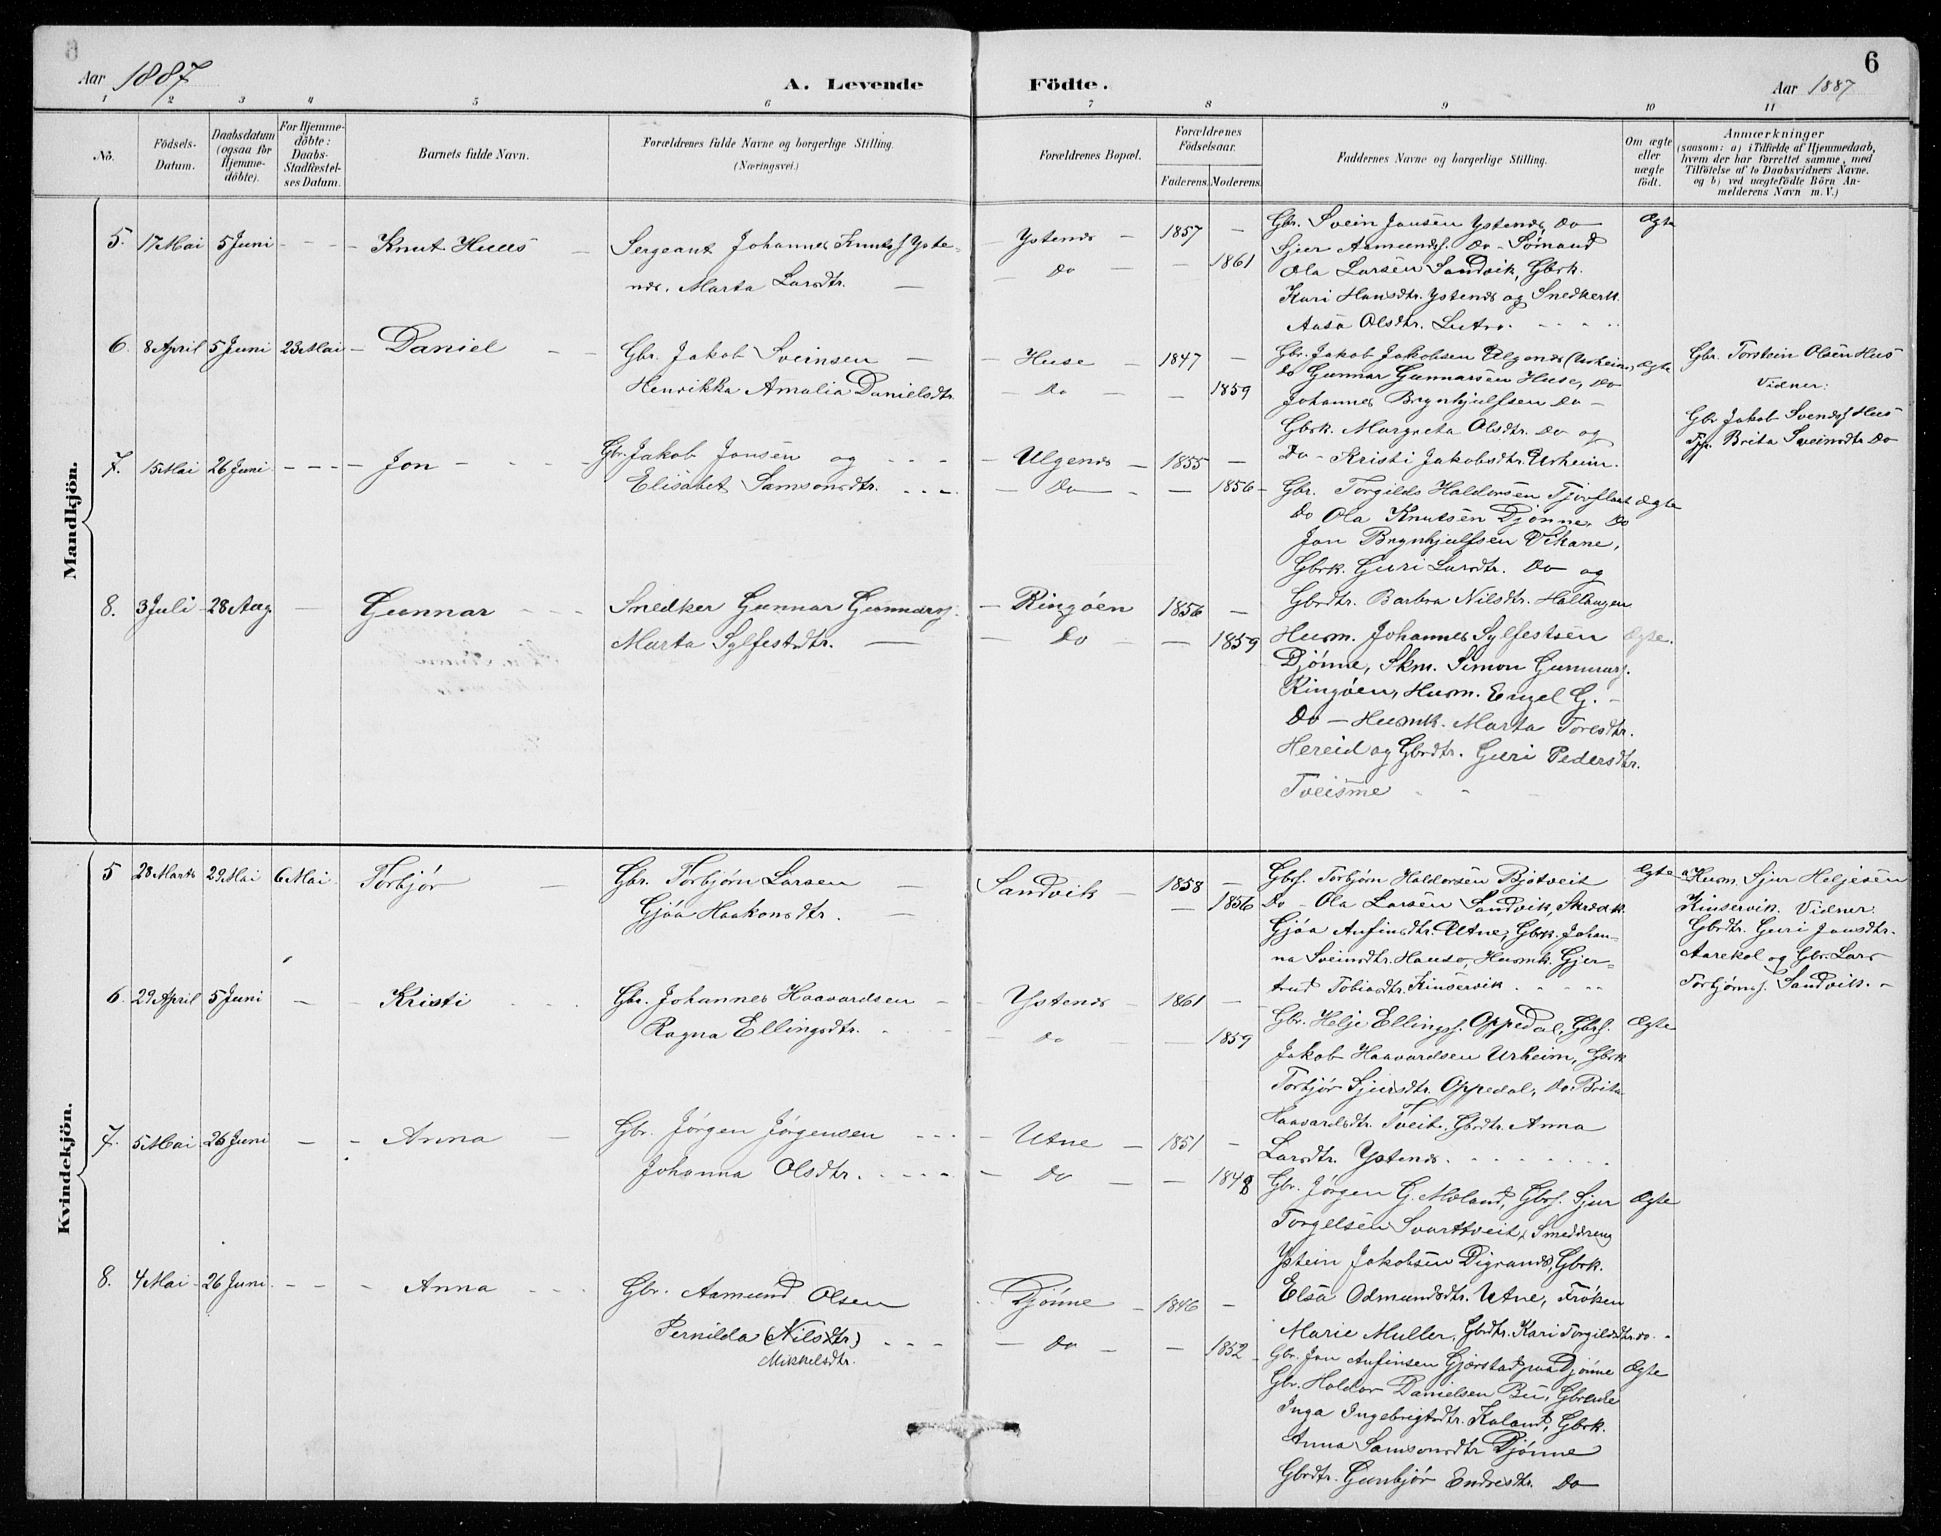 6
Aar 1887
A. Levende Födte.
Aar 1887
1 2 3 4 5 6 7 8 9 10 11
No.
Födsels-
Datum.
Daabsdatum
(ogsaa for
Hjemme-
döbte).
For Hjemme-
döbte:
Daabs-
Stadfæstel-
ses Datum.
Barnets fulde Navn.
Forældrenes fulde Navne og borgerlige Stilling.
(Næringsvei.)
Forældrenes Bopæl.
Forældrenes
Födselsaar.
Faderens. Moderens.
Faddernes Navne og borgerlige Stilling.
Om ægte
eller
uægte
födt.
Anmærkninger
(saasom: a) i Tilfælde af Hjemmedaab,
hvem der har forrettet samme, med
Tilföielse af to Daabsvidners Navne.
og b) ved uægtefödte Börn An-
melderens Navn m. V.)
Mandkjön.
5. 17 Mai 5 Juni - - - Knut Huus -
Sergeant Johannes Knuts. Yste-
nes. Marta Larsdtr. -
Ystenes - 1857 -
Do - - 1861
Gbr. Svein Jansen Ystenes, Do
Sjur Aamunds. Do - Sømand
Ola Larsen Sandvik, Gbrk.
Kari Hansdtr. Ystenes og Snedkerk.
Aasa Olsdtr. Lutro.
Ægte
6. 8 April 5 Juni 23 Mai - Daniel - -
Gbr. Jakob Sveinsen -
Henrikka Amalia Danielsdtr.
Huse - 1847 -
Do - - 1859
Gbr. Jakob Jakobsen Ulgenes (Urheim)
Do Gunnar Gunnarsen Huse, Do
Johannes Brynhjulfsen Do -
Gbrk. Margreta Olsdtr. Do og
Do - Kristi Jakobsdtr. Urheim.
Ægte
Gbr. Torstein Olsen Hus
Vidner:
Gbr. Jakob Svends. Hus
Brita Sveinsdtr Do
7. 15 Mai 26 Juni - - - - Jon - - -
Gbr. Jakob Jonsen og - - -
Elisabet Samsonsdtr. - - -
Ulgenes - 1855 -
Do - - 1856 -
Gbr. Torgilds Haldorsen Tjoflaat
Do Ola Knutsen Djønne, Do
Jon Brynhjulfsen Vikane,
Gbrk. Guri Larsdtr. Do og
Gbrdtr. Barbra Nilsdtr. Hallangen
Ægte
8. 3 Juli 28 Aug - Gunnar - - -
Snedker Gunnar Gunnars.
Marta Sylfestsdtr. -
Ringøen 1856 -
Do - - 1859
Husm. Johannes Sylfestsen
Djønne, Skm. Simon Gunnars.
Ringøen, Husm. Engel G. -
Do - Husmk. Marta Toresdtr.
Hereid og Gbrdtr. Guri Pedersdtr.
Tveisme
Ægte.
Kvindekjön.
5 28 Marts 29 Mai 6 Mai Torbjør -
Gbr. Torbjørn Larsen -
Gjøa Haakonsdtr. -
Sandvik - 1858 -
- 1856
Gbrs. Torbjørn Haldorsen Bjotveit
Do - Ola Larsen Sandvik, Skrædk.
Gjøa Anfinsdtr. Utne, Gbrk. Johan-
na Sveinsdtr. Hauso, Husmk. Gjer-
trud Tobiasdtr. Kinservik
Ægte
a Husm. Sjur Heljesen
Kinservik. Vidner:
Gbrdtr. Guri Jonsdtr.
Aarekol og Gbr. Lars
Torbjørns. Sandvik. -
6. 29 April 5 Juni - - Kristi
Gbr. Johannes Haavardsen -
Ragna Ellingsdtr.
Ystenes - 1861 -
Do - - 1859
Gbr. Helje Ellings. Oppedal, Gbrs.
Jakob Haavardsen Urheim, Gbrk.
Torbjør Sjursdtr. Oppedal, Do. Brita
Haavardsdtr. Tveit. Gbrdtr. Anna
Larsdtr. Ystenes.
Ægte
7. 5 Mai 26 Juni - - Anna -
Gbr. Jørgen Jørgensen - - -
Johanna Olsdtr. - - - -
Utne - 1851 -
Do - - 1848
Gbr. Jørgen G. Mæland, Gbrs. Sjur
Torgelsen Svarttveit, Smeddreng
Ystein Jakobsen Digranes, Gbrk.
Elsa Odmundsdtr. Utne, Frøken
Marie Muller, Gbrdtr. Kari Torgilsdtr. do. -
Ægte
8. 4 Mai 26 Juni - - - Anna - - -
Gbr. Aamund Olsen
Pernilda (Nilsdtr) - - -
Mikkelsdtr.
Djønne - 1846 -
Do - - 1852 -
Gbr. Jon Anfinsen Gjerstad paa Djønne
Gbr. Haldor Danielsen Bu, Gbrenke
Inga Ingebrigtsdtr. Kaland, Gbrk.
Anna Samsonsdtr Djønne
Gbrdtr. Gunbjør Endresdtr. Do
Ægte